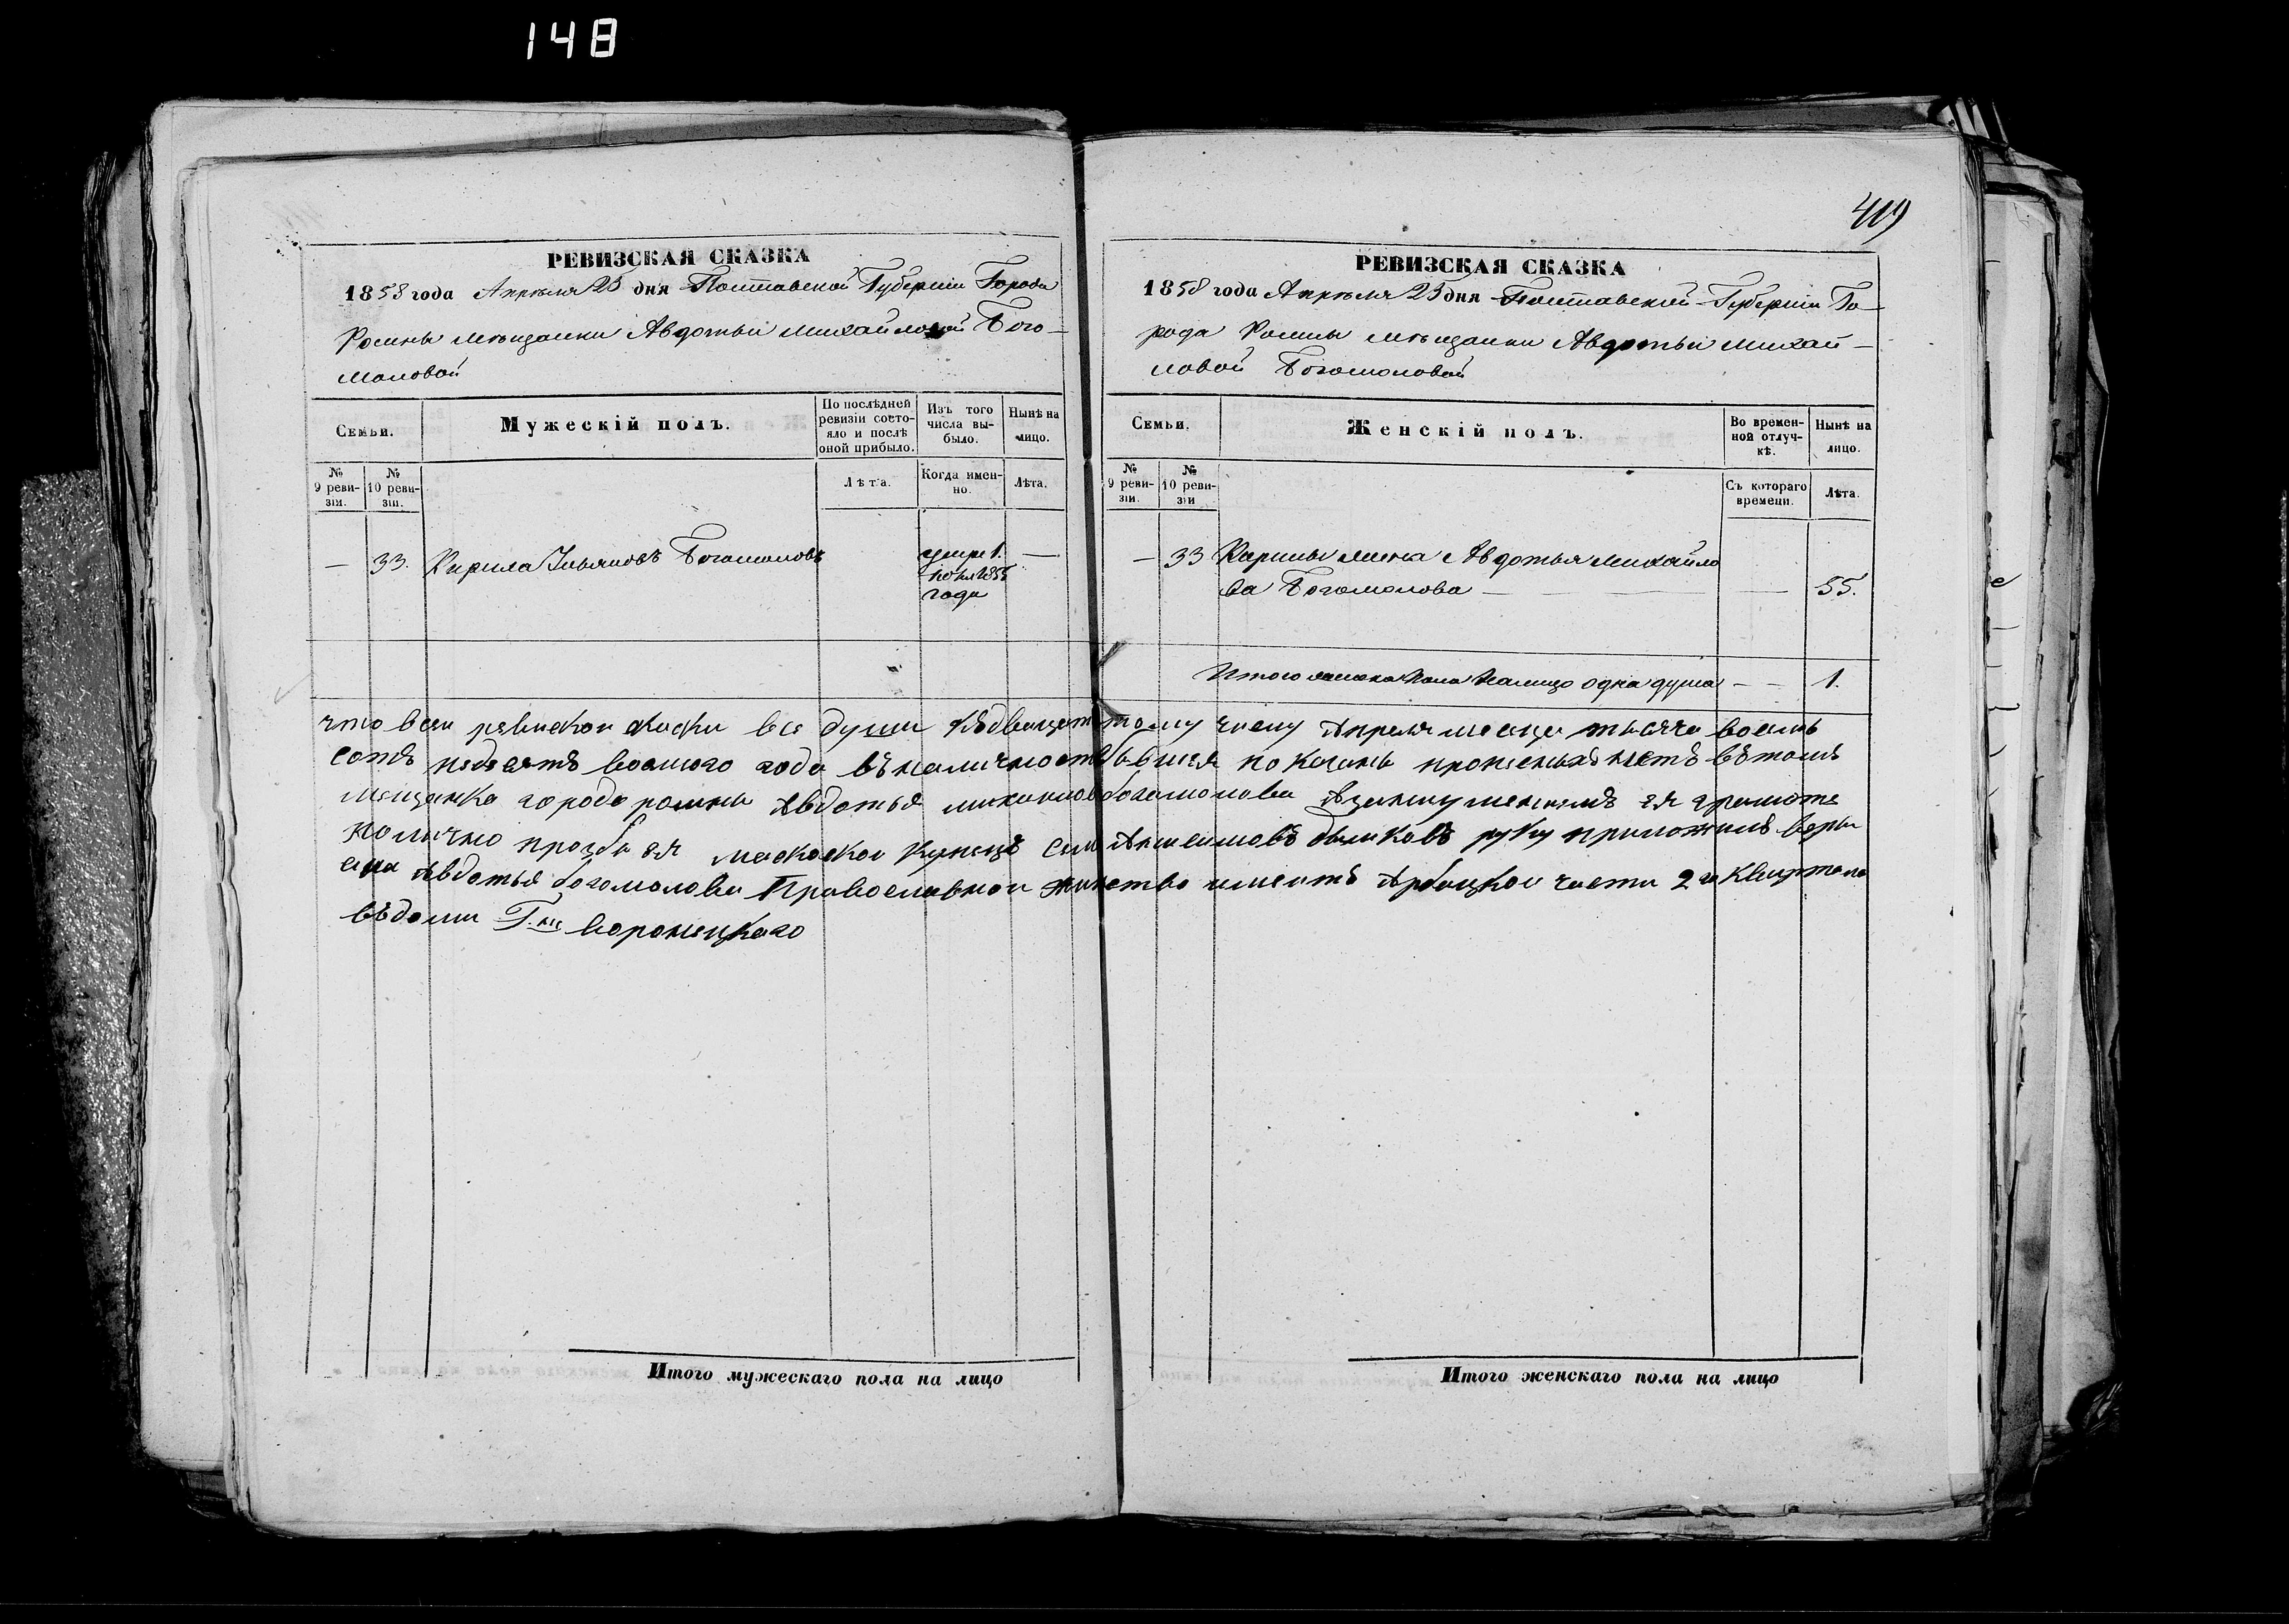 148
409
РЕВИЗСКАЯ СКАЗКА
1858 года Апреля 23 дня Полтавской Губерніи Города
Ромны мѣщанки Авдотьи Михайловой Бого-
моловой
Семьи.
Мужескій полъ.
По послѣдней ревизіи состояло и послѣ оной прибыло.
Изъ того числа выбыло.
Нынѣ на лицо.
№ 9 ревизіи.
№ 10 ревизіи.
Лѣта.
Когда именно.
Лѣта.
— 33. Кирила Богомоловъ —
1855
года
Итого мужескаго пола на лицо
РЕВИЗСКАЯ СКАЗКА
1858 года Апреля 23 дня Полтавской Губерніи Го-
рода Ромны мѣщанки Авдотьи Михай-
ловой Богомоловой
Семьи.
Женскій полъ.
Во временной отлучкѣ.
Нынѣ на лицо.
№ 9 ревизіи.
№ 10 ревизіи
Съ котораго времени.
Лѣта.
— 33 Кирилы жена Авдотья Михайло
ва Богомолова — — — 55.
Итого женска пола налицо одна душа — — 1.
что всеи ревиской скаски все души тому числу Апреля месеца тысяча восемь
сотъ восмого года показаны нетъ вътомъ
мещанка города ромны Авдотья богомолова грамоте
прозби ея москоской купецъ руку приложилъ веры
она Авдотья богомолова Православной имеитъ Арбацкой части 2 го квартала
въдоми Г.на воронецкаго
Итого женскаго пола на лицо